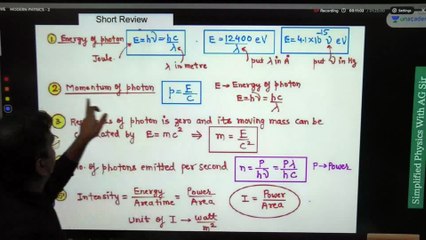 MODERN PHYSICS - 2
Short Review
unacademy
① Energy of photon E=hν=hc/λ E = 12400/λ eV E=4.1×10⁻¹⁵ ν eV
Joule λ in metre put λ in Å put ν in Hz
② Momentum of photon p = E/C E → Energy of photon
E=hν=hc/λ
③ of photon is zero and its moving mass can be
by E=mc² ⇒ m = E/c²
No. of photons emitted per second n = P/hν = Pλ/hc P→Power
Intensity = Energy/Area time = Power/Area I = Power/Area
Unit of I → watt/m²
Simplified Physics With AG Sir